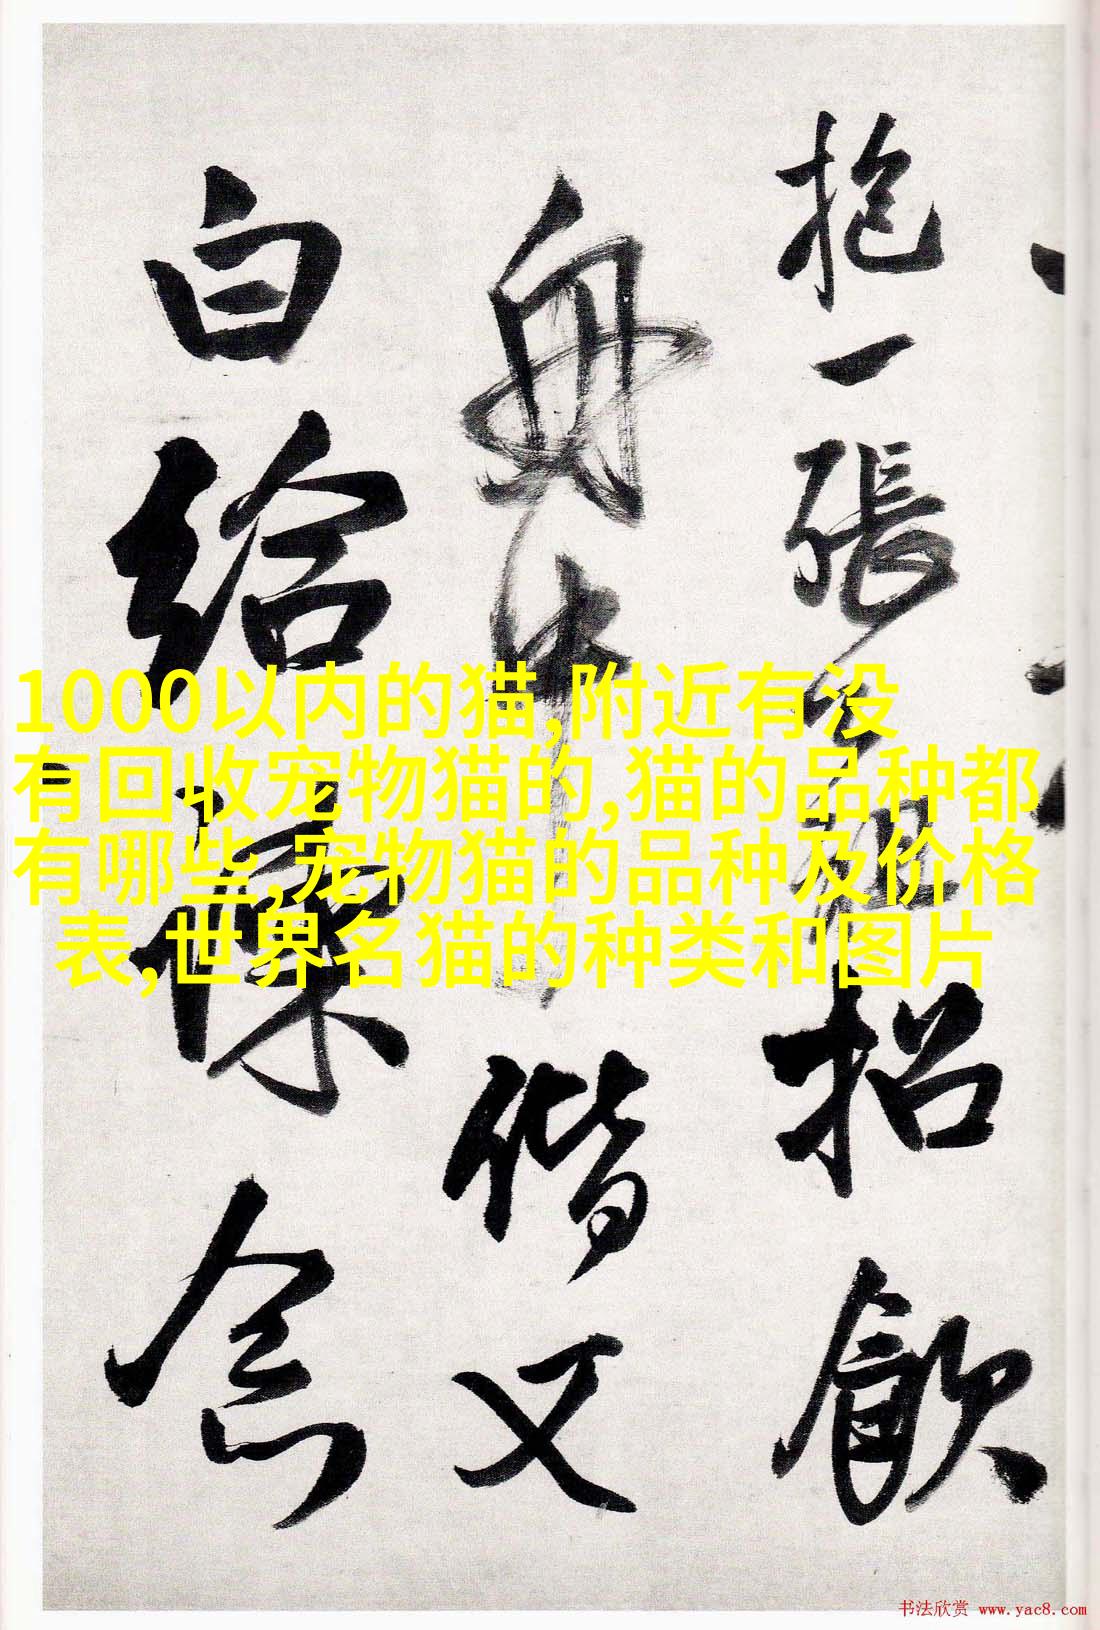 抱一張
招飲
舟中
偕又
白給
念
1000以内的猫,附近有没
有回收宠物猫的,猫的品种都
有哪些,宠物猫的品种及价格
表,世界名猫的种类和图片
书法欣赏 www.yac8.com